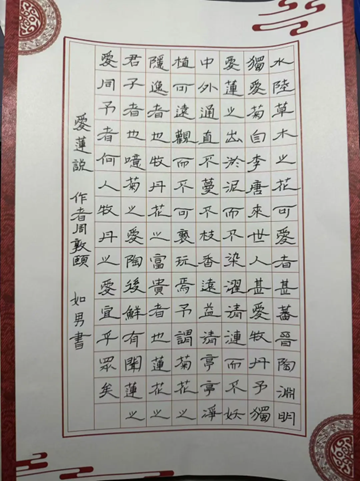 水陸草木之花可愛者甚蕃晉陶淵明
獨愛菊自李唐來世人甚愛牧丹予獨
愛蓮之出淤泥而不染濯清漣而不妖
中外通直不蔓不枝香遠益清亭亭淨
植可遠觀而不可褻玩焉予謂菊花之
隱逸者也牧丹花之富貴者也蓮花之
君子者也噫菊之愛陶後鮮有聞蓮之
愛同予者何人牧丹之愛宜乎眾矣
愛蓮說 作者周敦頤 如男書